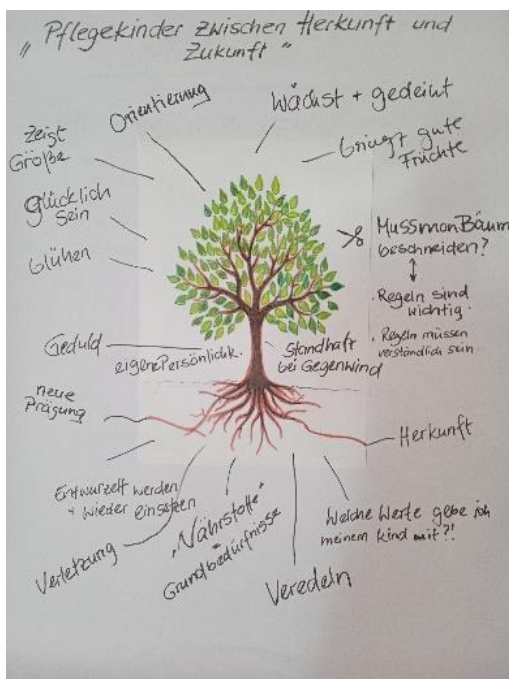 "Pflegekinder zwischen Herkunft und
Zukunft"
Orientierung
Wächst + gedeiht
Zeigt
Größe
bringt gute
Früchte
glücklich
sein
Muss man Bäume
beschneiden?
Blühen
Regeln sind
wichtig.
Regeln müssen
verständlich sein
Geduld
eigene Persönlichk.
Standhaft
bei Gegenwind
neue
Prägung
Herkunft
Entwurzelt werden
+ wieder einsetzen
Verletzung
"Nährstoffe"
=
Grundbedürfnisse
Welche Werte gebe ich
meinem Kind mit?!
Veredeln